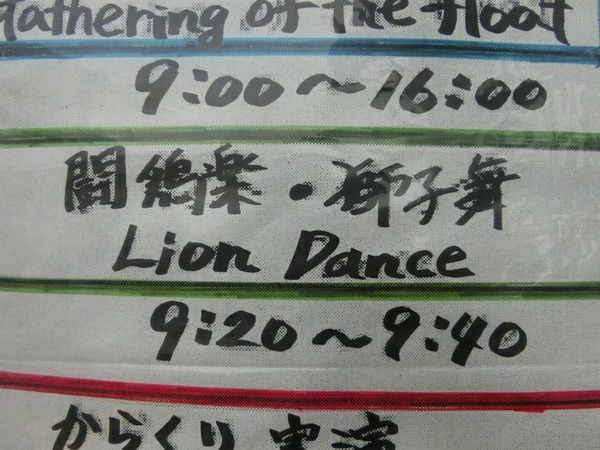 Gathering of the float
9:00～16:00
闘鶏楽・獅子舞
Lion Dance
9:20～9:40
からくり実演